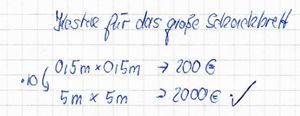 Kosten für das große Schachbrett
0,5m × 0,5m → 200 €
·10
5m × 5m → 2000 € ✓